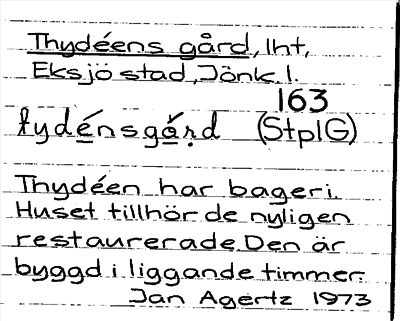 Thydéens gård, lht,
Eksjö stad, Jönk. l.
163
tydénsgård (StplG)
Thydéen har bageri.
Huset tillhör de nyligen
restaurerade. Den är
byggd i liggande timmer.
Jan Agertz 1973